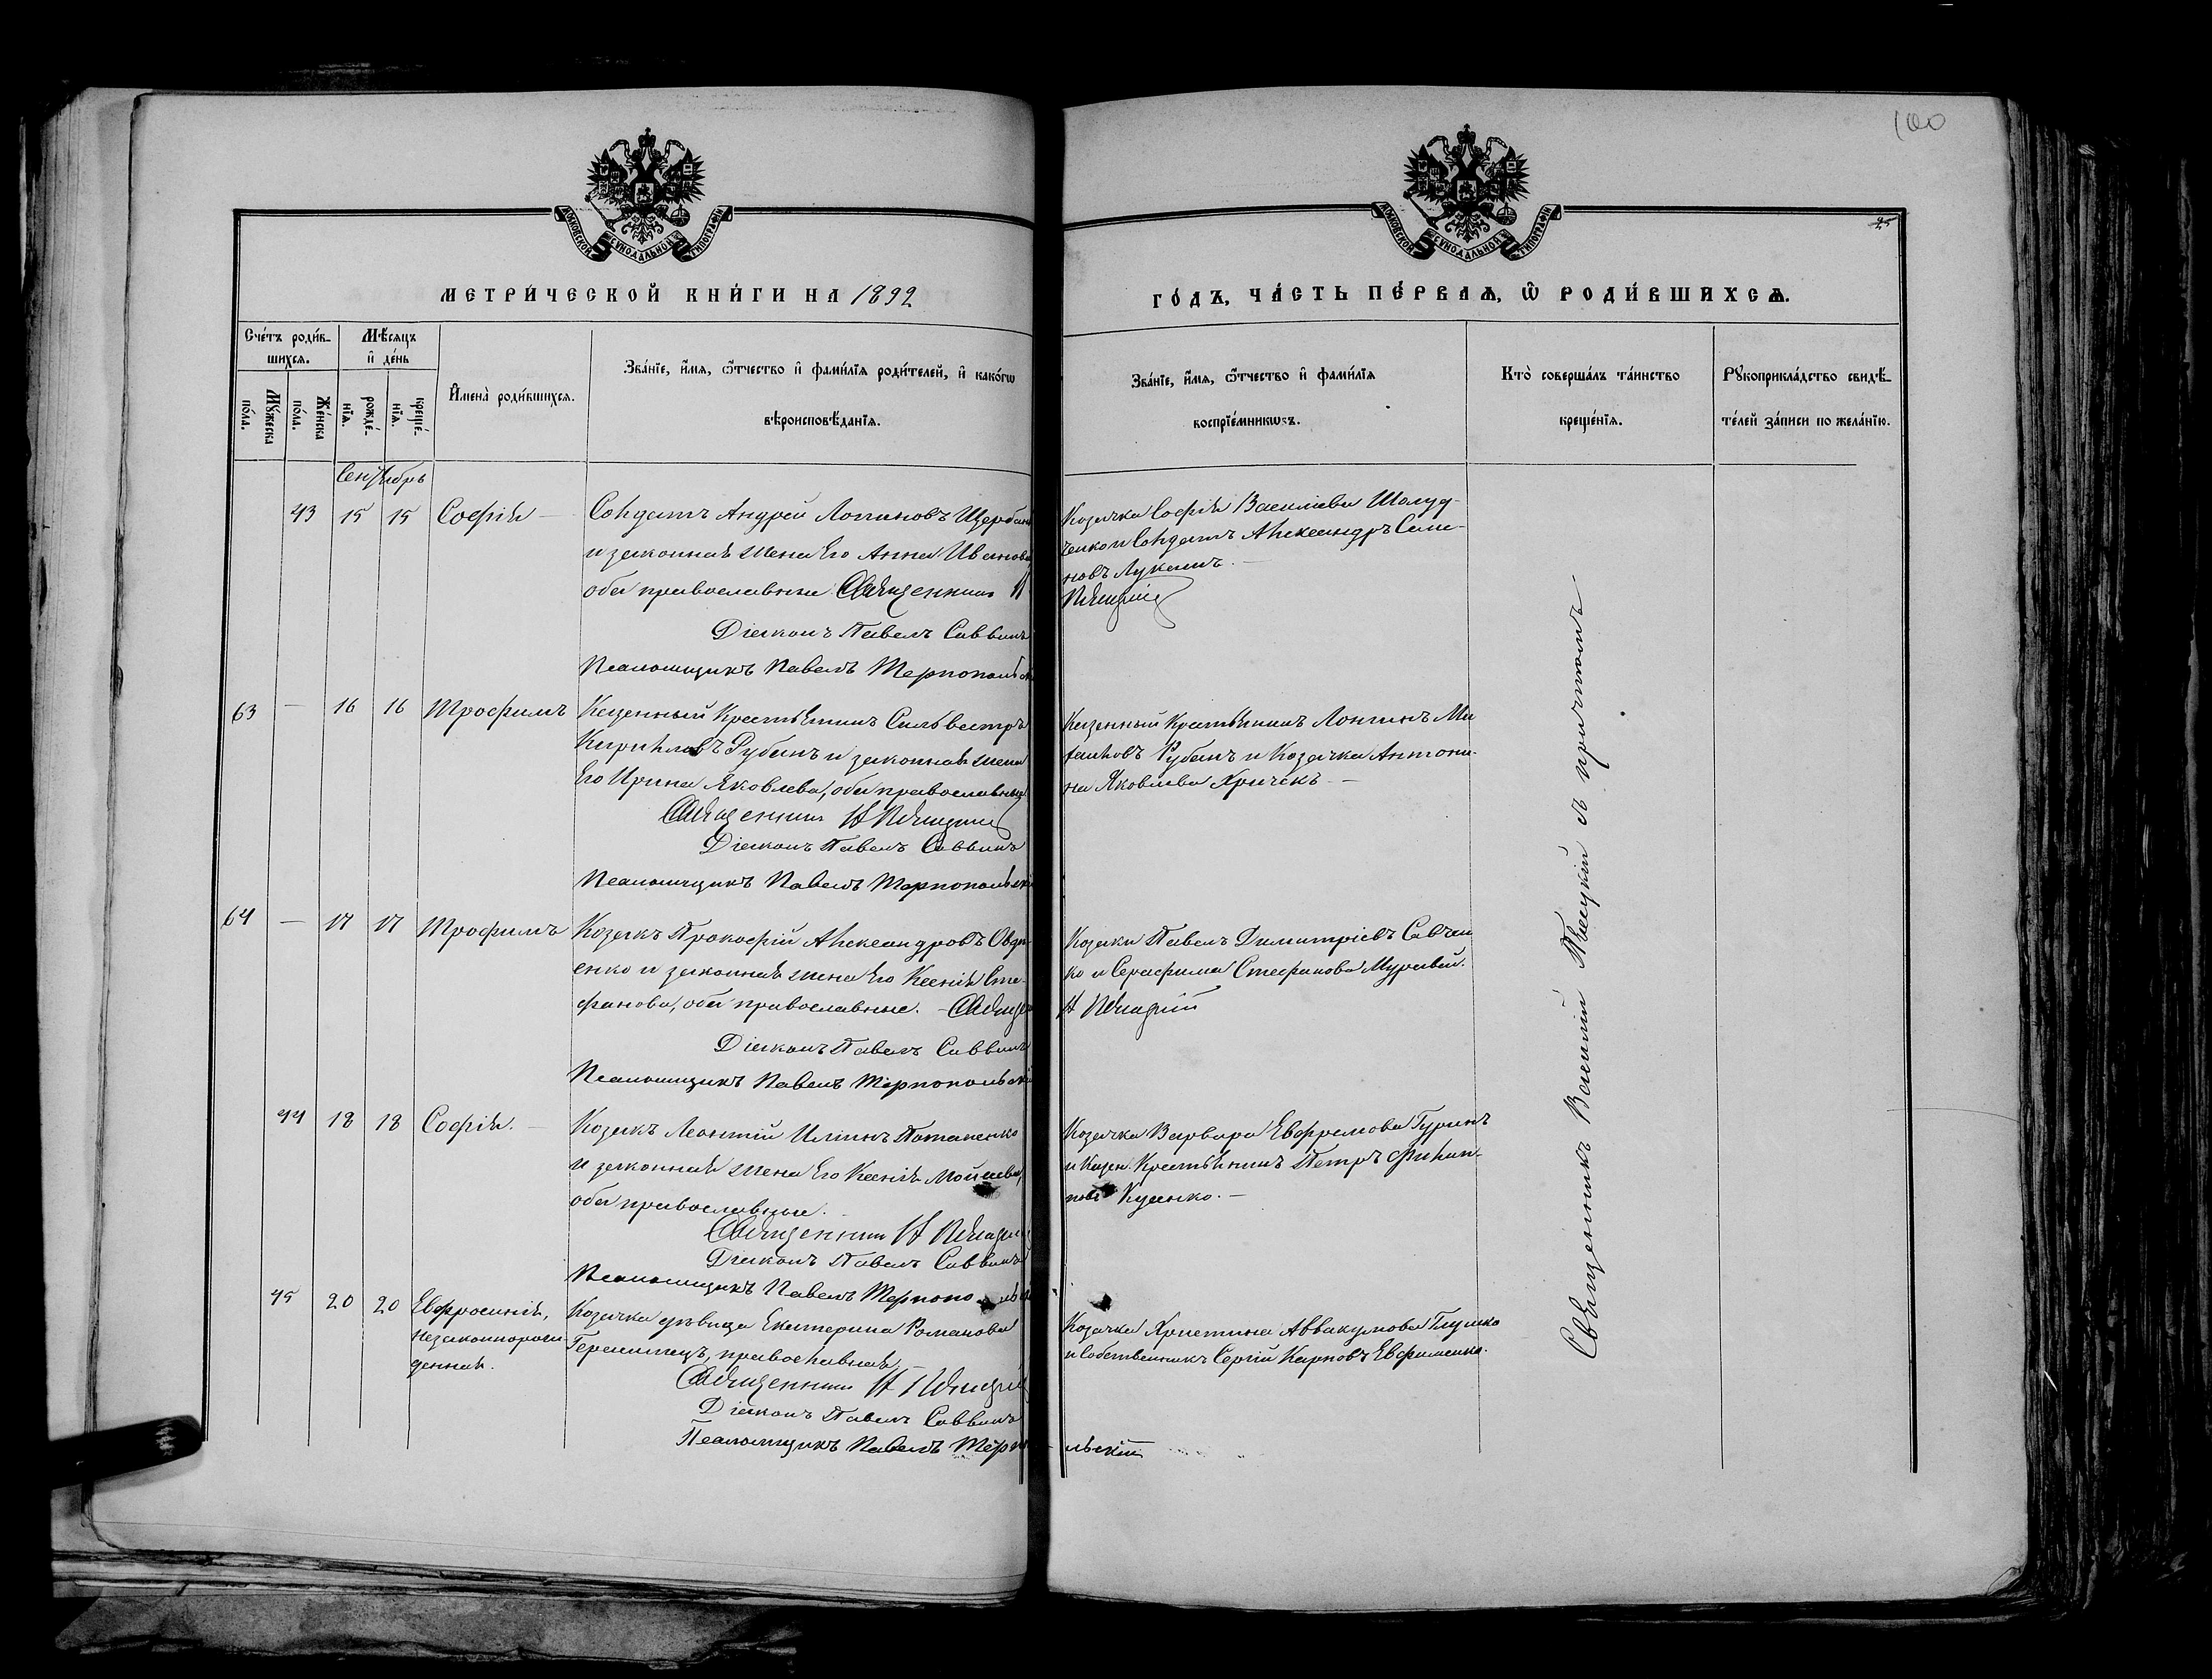 100
МОСКОВСКОЙ СѴНОДАЛЬНОЙ ТИПОГРАФІИ
МОСКОВСКОЙ СѴНОДАЛЬНОЙ ТИПОГРАФІИ
МЕТРИ́ЧЕСКОЙ КНИ́ГИ НА 1892
ГО́ДЪ, ЧА́СТЬ ПЕ́РВАѦ, Ѡ҆ РОДИ́ВШИХСѦ.
Сче́тъ роди́в-
шихсѧ.
Мꙋ́жеска по́ла.
Же́нска по́ла.
Мѣ́сѧцъ
и҆ де́нь
рожде́-нїѧ.
креще́-нїѧ.
И҆мена̀ роди́вшихсѧ.
Зва́нїе, и҆́мѧ, ѻ҆́тчество и҆ фами́лїѧ роди́телей, и҆ како́гѡ
вѣроисповѣ́данїѧ.
Зва́нїе, и҆́мѧ, ѻ҆́тчество и҆ фами́лїѧ
воспрїе́мникѡвъ.
Кто̀ соверша́лъ та́инство
креще́нїѧ.
Рꙋкоприкла́дство свидѣ́-
телей за́писи по жела́нїю.
Сентябрь
43 15 15 Софія — Солдатъ Андрей Логиновъ Щербань
и законная жена Его Анна Иванова
оба православные Священникъ
Діаконъ Павелъ Саввинъ
Псаломщикъ Павелъ Терпопольскі
Козачка Софія Василіева Шолуд-
ченко и Солдатъ Александръ Симо-
новъ Лукашъ. —
63 — 16 16 Трофимъ Казенный Крестьянинъ Сильвестръ
Кирилловъ Рубанъ и законная жена
Его Ирина Яковлева, оба православные
Священникъ
Діаконъ Павелъ Саввинъ
Псаломщикъ Павелъ Терпопольскі
Казенный Крестьянинъ Лонгинъ Ми
хаиловъ Рубанъ и Козачка Антони-
на Яковлева Хричекъ —
64 — 17 17 Трофимъ Козакъ Прокофій Александровъ Овді
енко и законная жена Его Ксенія Сте-
фанова, оба православные. — Священ
Діаконъ Павелъ Саввинъ
Псаломщикъ Павелъ Терпопольскі
Козаки Павелъ Димитріевъ Савчен
ко и Серафима Стефанова Муравей.
44 18 18 Софія. — Козакъ Леонтій Иліинъ Потапенко
и законная жена Его Ксенія Мойсеева,
оба православные.
Священникъ
Діаконъ Павелъ Саввинъ
Псаломщикъ Павелъ Терпопольскі
Козачка Варвара Евфремова Гуринъ
и Казен. Крестьянинъ Петръ Филип-
повъ Куценко. —
45 20 20 Евфросинія, Козачка дѣвица Екатерина Романова
незаконнорож- православная, —
денная. Священникъ
Діаконъ Павелъ Саввинъ
Псаломщикъ Павелъ Терпо льскій
Козачка Христина Аввакумова Глушко
и Собственникъ Сергій Карповъ Евфименко.
Священникъ Василій съ причтомъ